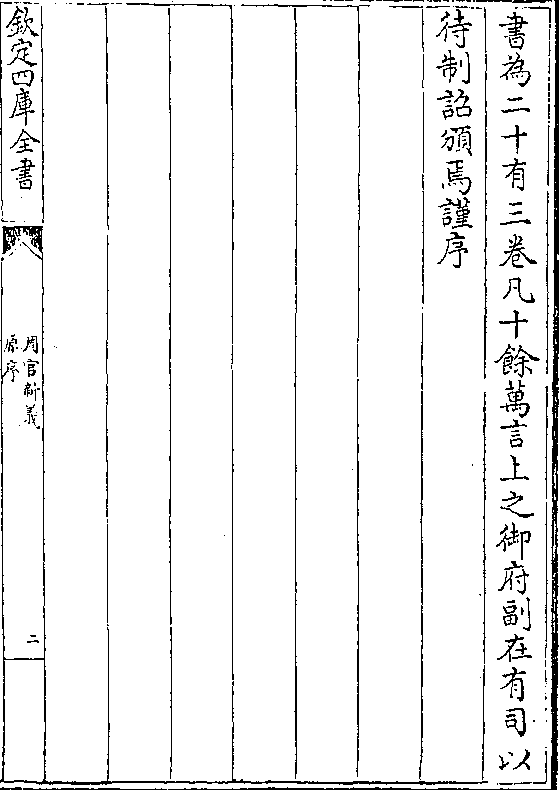 書為二十有三卷凡十餘萬言上之御府副在有司以
待制詔頒焉謹序
欽定四庫全書
周官新義
原序
二